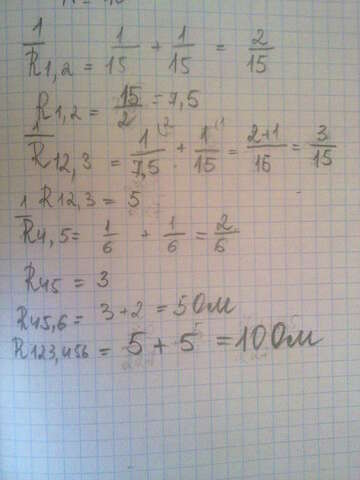 1/R1,2 = 1/15 + 1/15 = 2/15
R1,2 = 15/2 = 7,5
1/R12,3 = 1/7,5 + 1/15 = 2+1/15 = 3/15
R12,3 = 5
1/R4,5 = 1/6 + 1/6 = 2/6
R45 = 3
R45,6 = 3+2 = 5 Ом
R123,456 = 5 + 5 = 10 Ом